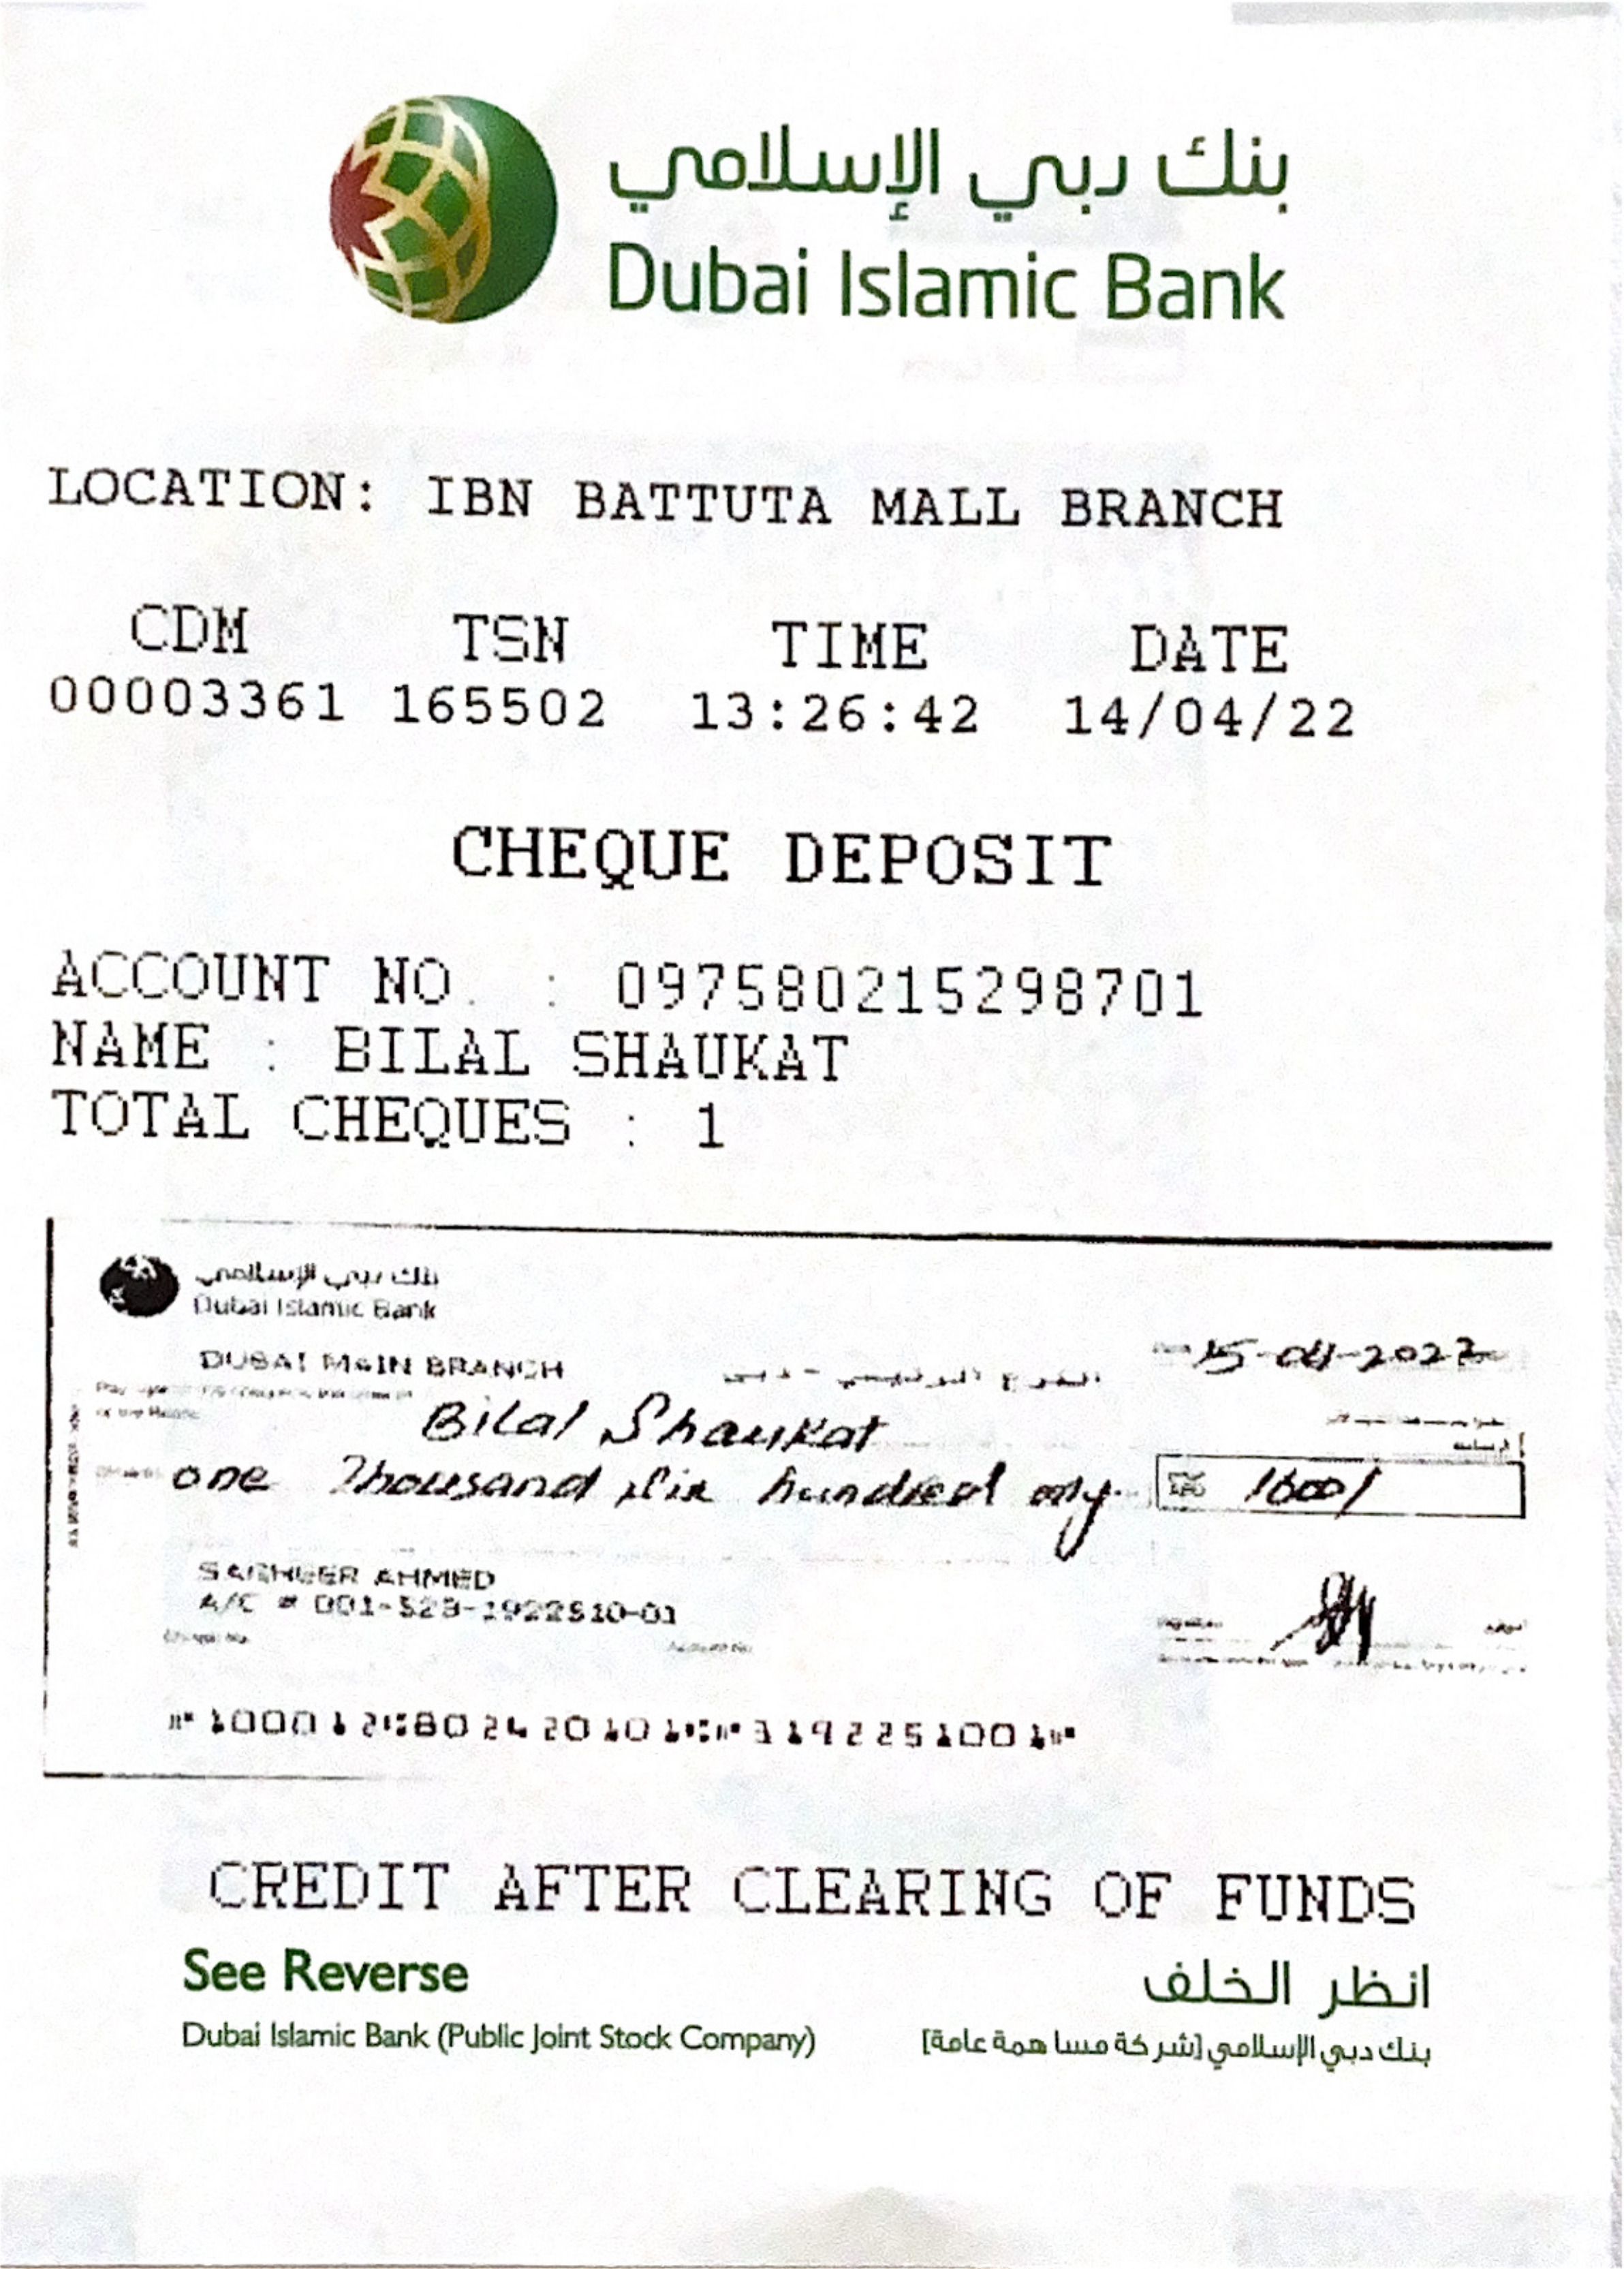 بنك دبي الإسلامي
Dubai Islamic Bank
LOCATION: IBN BATTUTA MALL BRANCH
CDM TSN TIME DATE
00003361 165502 13:26:42 14/04/22
CHEQUE DEPOSIT
ACCOUNT NO. : 097580215298701
NAME : BILAL SHAUKAT
TOTAL CHEQUES : 1
بنك دبي الإسلامي
Dubai Islamic Bank
DUBAI MAIN BRANCH
15-04-2022
Bilal Shaukat
one Thousand Six hundred only. 1600/
SAGHEER AHMED
A/C # 001-520-1922510-01
CREDIT AFTER CLEARING OF FUNDS
See Reverse انظر الخلف
Dubai Islamic Bank (Public Joint Stock Company) بنك دبي الإسلامي (شركة مساهمة عامة)